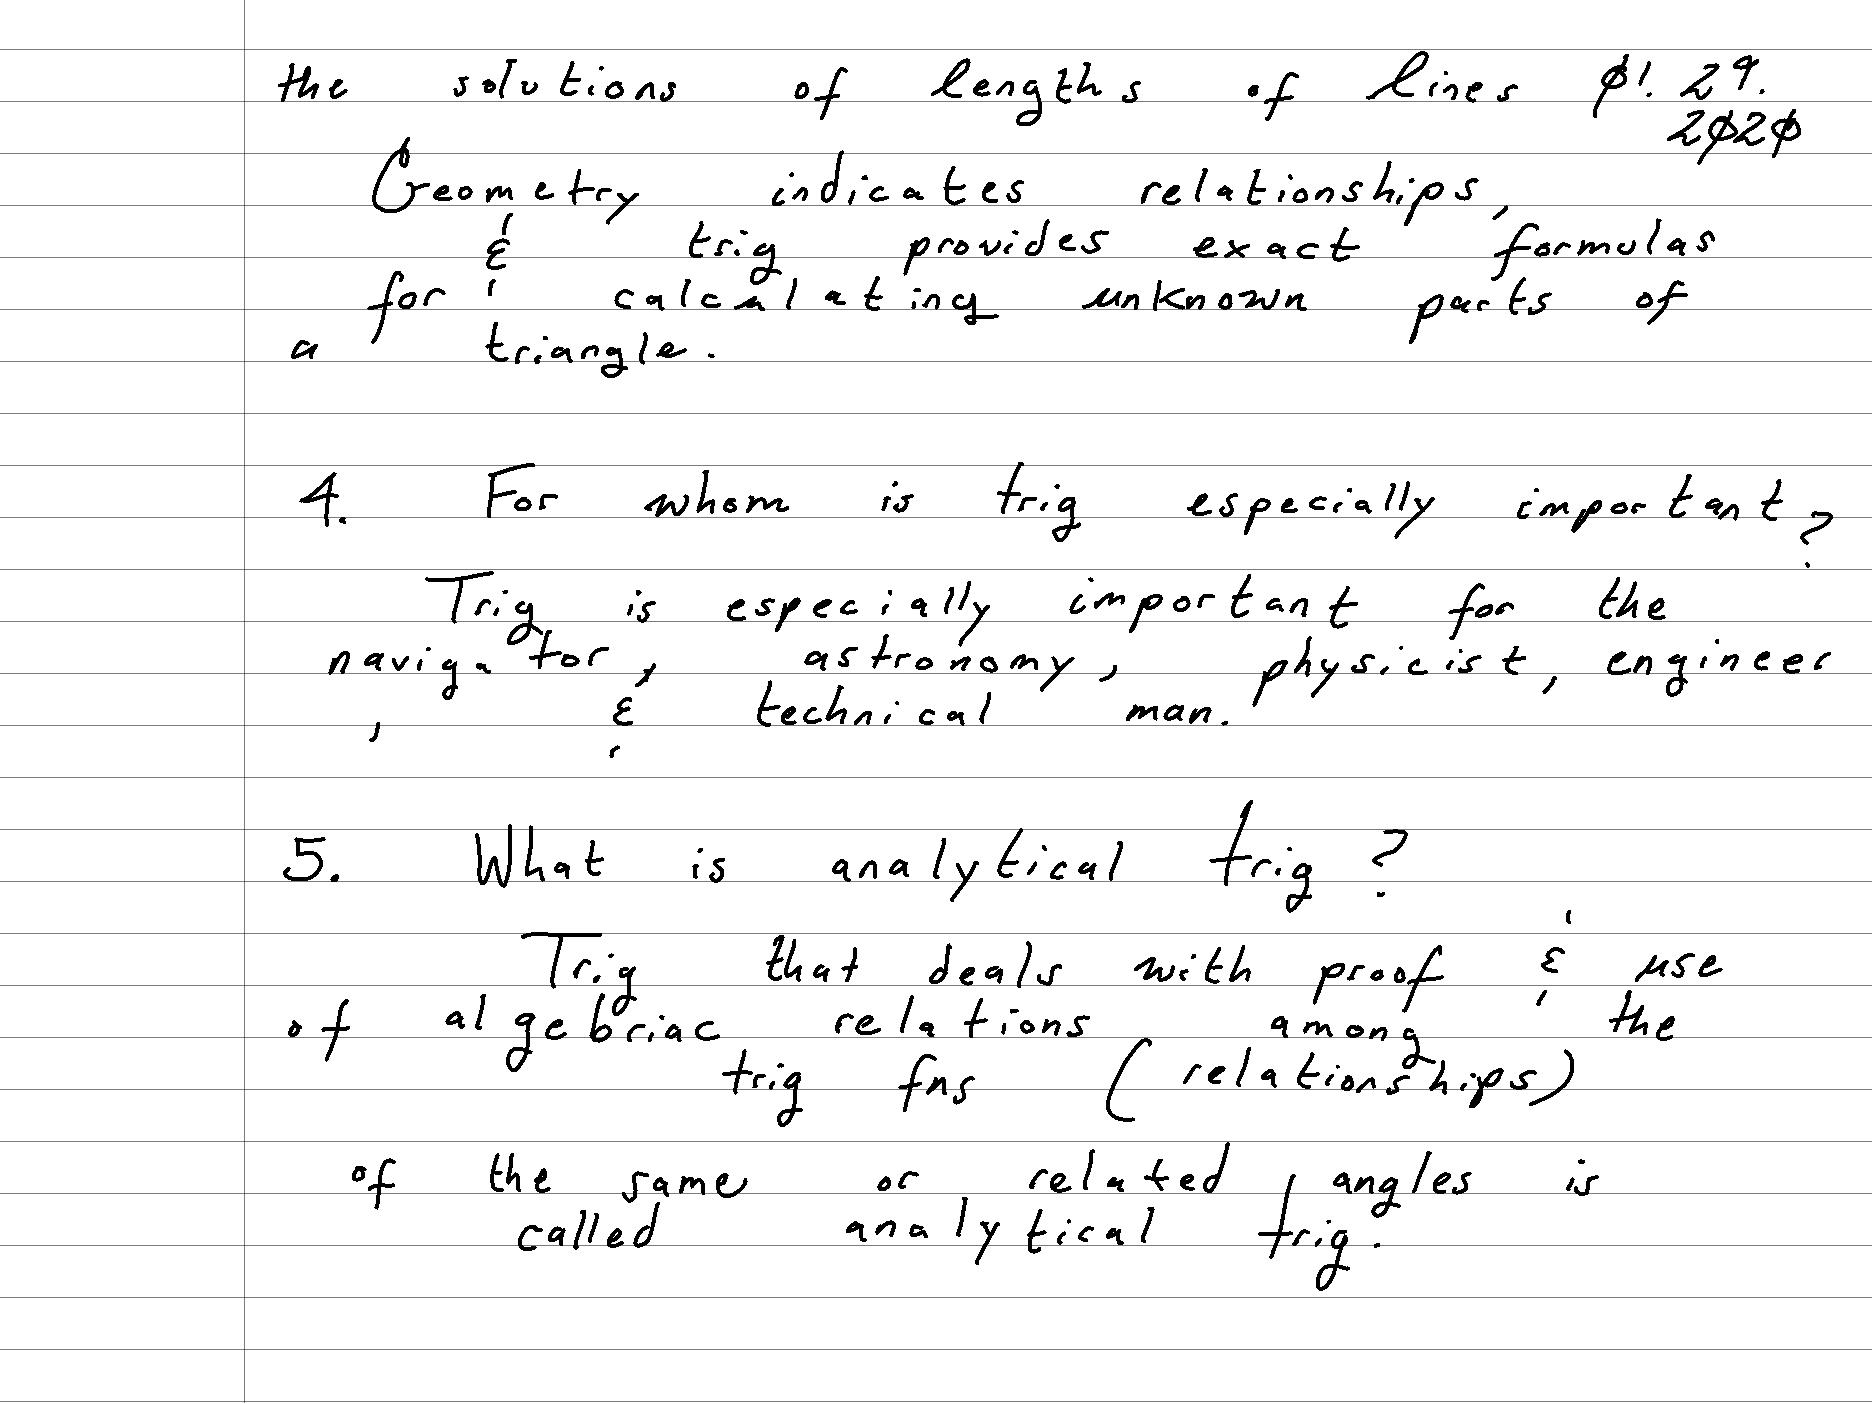 the solutions of lengths of lines 01. 29.
2020
Geometry indicates relationships,
& trig provides exact formulas
for calculating unknown parts of
a triangle.
4. For whom is trig especially important?
Trig is especially important for the
navigator, astronomy, physicist, engineer
, & technical man.
5. What is analytical trig?
Trig that deals with proof & use
of algebriac relations among the
trig fns (relationships)
of the same or related angles is
called analytical trig.